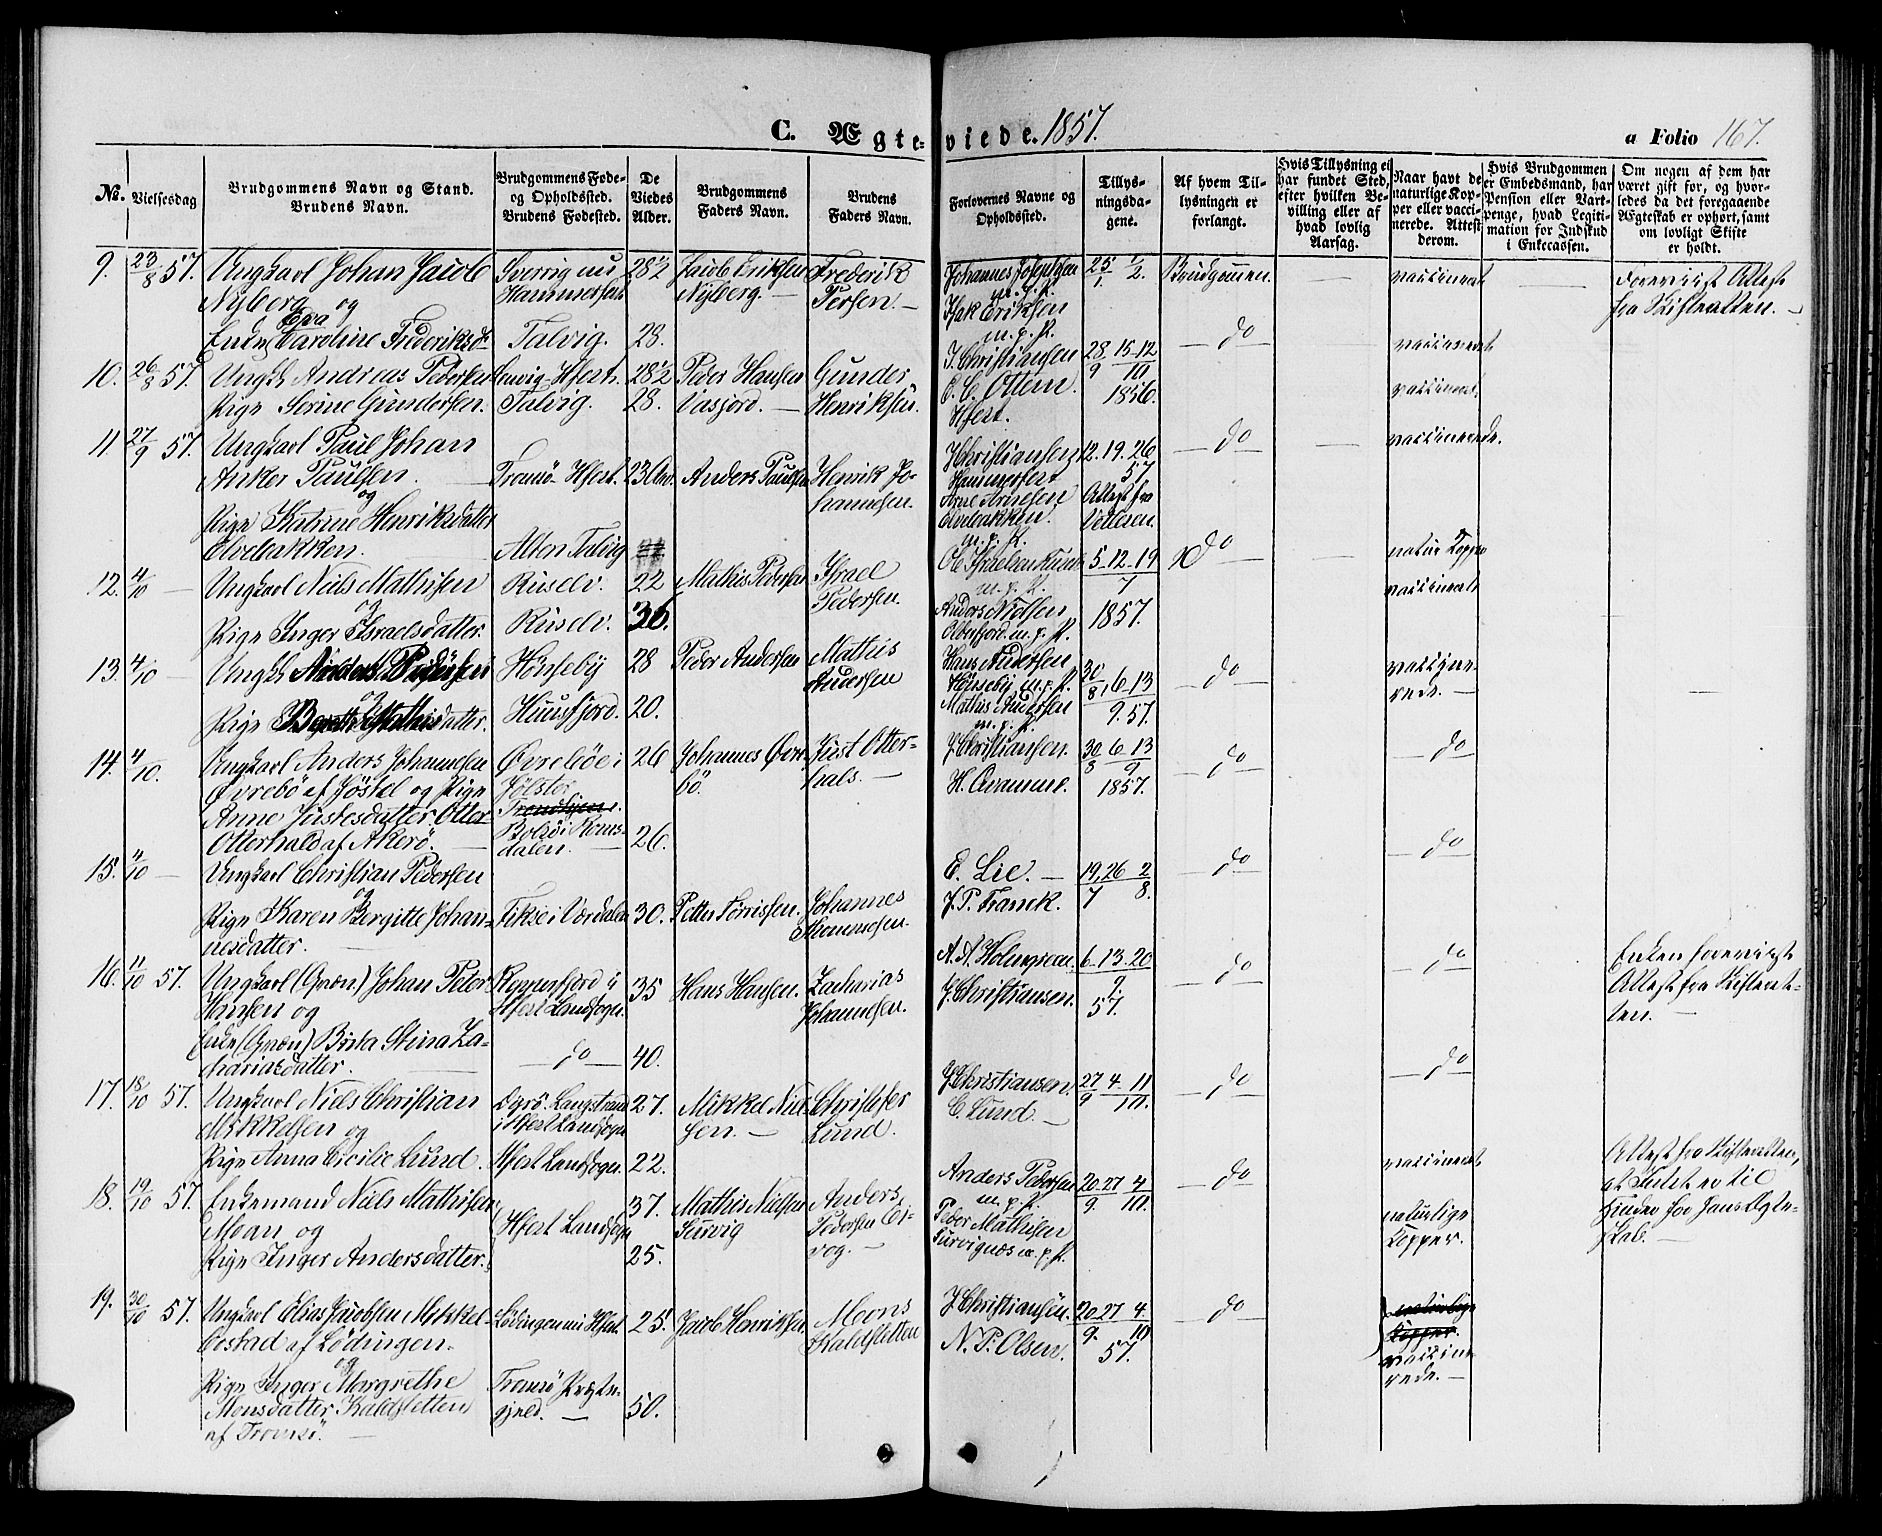 C. Ægteviede. 1857.
a Folio 167.
No.
Vielsesdag
Brudgommens Navn og Stand.
Brudens Navn.
Brudgommens Føde-
og Opholdssted.
Brudens Fødested.
De
Viedes
Alder.
Brudgommens
Faders Navn.
Brudens
Faders Navn.
Forlovernes Navne og
Opholdssted.
Tillys-
ningsda-
gene.
Af hvem Til-
lysningen er
forlangt.
Hvis Tillysning ei
har fundet Sted,
efter hvilken Be-
villing eller af
hvad lovlig
Aarsag.
Naar havt de
naturlige Kop-
per eller vacci-
nerede. Attest
derom.
Hvis Brudgommen
er Embedsmand, har
Pension eller Vart-
penge, hvad Legiti-
mation for Indskud
i Enkecassen.
Om nogen af dem har
været gift før, og hvor-
ledes da det foregaaende
Ægteskab er ophørt, samt
om lovligt Skifte
er holdt.
9. 23/8 57. Ungkarl Johan Jacob
Nyberg og
Enke Eva Caroline Frederiksd
Sverrig nu
Hammerfest
Talvig.
28 1/2
28.
Jacob Eriksen
Nyberg. —
Frederik
Persen. —
Johannes Josephsen
m. f. P.
Isak Eriksen
m. p. P.
25/1 1/2.
Brudgommen
vaccineret
Forevist Attest
fra Skifteretten. —
10. 26/8 57. Ungk Andreas Pedersen
Pige Serine Gundersen.
Lenvig Hfest.
Talvig.
28 1/2
28.
Peder Hansen
Vasjord. —
Gunder
Henriksen.
J. Christiansen
E. C. Ottem.
Hfest.
28. 15-12
9 10
1856.
— do —
vaccineret
vaccineret.
11 27/9 57. Ungkarl Paul Johan
Anker Paulsen.
og
Pige Katrine Henriksdatter
Elvebakken.
Tromsö Hfest.
Alten Talvig
23 Aar
Anders Paulsen
Henrik Jo-
hannesen.
J Christiansen
Hammerfest
Arne Arnesen
Elvebakken.
m. p. P.
12. 19. 26
57
Attest fra
— do —
vaccinerede.
12. 4/10 — Ungkarl Niels Mathisen
og
Pige Inger Israelsdatter.
Ruselv.
Ruselv.
22
36.
Mathis Pedersen
Israel
Pedersen.
m. p. P.
Anders Nielsen
m. p. P.
5. 12. 19
7
1857.
do —
natur Kopper
vaccineret
13. 4/10 — Ungk Anders Pedersen
og
Pige Berethe Mathisdatter.
Hönseby
Huusfjord.
28
20.
Peder Andersen
Mathis
Andersen
Hans Andersen
Hönseby m. p. P.
Mathis Andersen
m. p. P.
30/8, 6-13
9. 57.
— do —
vaccine-
rede. —
14. 4/10. Ungkarl Anders Johannesen
Övrebö af Jöstel og Pige
Anne Justesdatter Otter
Otterhals af Akerö.
Övreböe i
Jölster
Trondhjem.
Bolsö i Roms-
dalen. —
26
26.
Johannes Övre-
bö.
Just Otter-
hals. —
J. Christiansen.
H. Aramme.
30 6-13
8 9
1857.
— do —
— do —
15. 4/10 — Ungkarl Christian Pedersen
og
Pige Karen Bergitte Johan-
nesdatter.
i Værdalen
30.
Johannes
E. Lie. —
J. P. Franck.
19, 26 2
7 8.
— do —
— do —
16. 11/10 57. Ungkarl (Qvæn) Johan Peter
Hansen og
Enke (Qvæn) Brita Stina Za-
chariasdatter.
Reppenfjord i
Hfest Landsogn.
— do —
35
40.
Hans Hansen.
Zacharias
Johannesen.
A. A. Holmgreen.
J. Christiansen.
6. 13. 20
9.
57.
— do —
— do —
Enken forevist
Attest fra Skifteret-
ten. —
17. 18/10 57. Ungkarl Niels Christian
Mikkelsen og
Pige Anna Cicilie Lund.
Langstrand
i Hfest Landsogn
Hfest Landsogn.
27.
22.
Mikkel Niel-
sen. —
Christofer
Lund.
J. Christiansen.
C. Lund —
27 4. 11
9 10.
— do —
— do —
18. 19/10 57. Enkemand Niels Mathisen
Moan og
Pige Inger Andersdatter.
Hfest Landsogn
37.
25.
Mathis Nielsen
Survig
Anders
Pedersen Ei-
vog. —
Anders Pedersen
m. p. P.
Peder Mathisen
Survignæs m. p. P.
20. 27 4
9. 10.
— do —
vaccineret
naturlige
Kopper.
Attest fra Skifteretten,
at Intet er til
Hinder for hans Ægte-
skab. —
19. 30/10 57. Ungkarl Elias Jacobsen Mikkel-
bostad af Lödingen.
og
Pige Inger Margrethe
Monsdatter Kaldsletten
af Tromsö. —
Lödingen nu Hfest.
Tromsö Præste-
gjeld. —
25.
50.
Jacob Henriksen
Moons
Kaldsletten
J Christiansen.
N. P. Olsen.
20. 27 4.
9. 10
57.
— do —
naturlige
Kopper.
vaccine-
rede. —